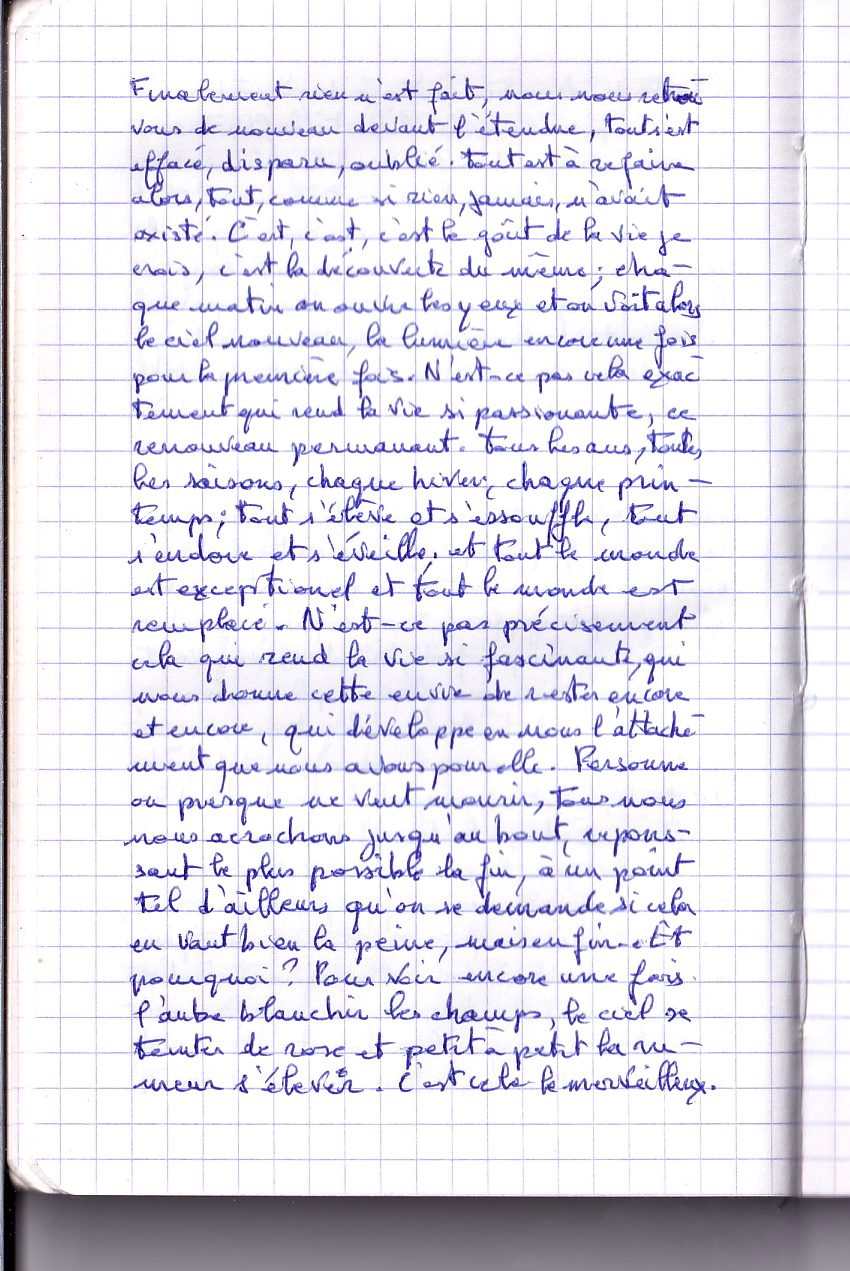 Finalement rien n'est fait, nous nous retrou
vons de nouveau devant l'étendue, tout s'est
effacé, disparu, oublié. Tout est à refaire
alors, tout, comme si rien, jamais, n'avait
existé. C'est, c'est, c'est le goût de la vie je
crois, c'est la découverte du même; cha-
que matin on ouvre les yeux et on voit alors
le ciel nouveau, la lumière encore une fois
pour la première fois. N'est-ce pas cela exac
tement qui rend la vie si passionante, ce
renouveau permanant. Tous les ans, toutes
les saisons, chaque hiver, chaque prin-
temps; tout s'élève et s'essouffle, tout
s'endore et s'éveille, et tout le monde
est exceptionel et tout le monde est
remplacé. N'est-ce pas précisement
cela qui rend la vie si fascinante, qui
nous donne cette envie de rester encore
et encore, qui développe en nous l'attache
ment que nous avons pour elle. Personne
ou presque ne veut mourir, tous nous
nous acrochons jusqu'au bout, repous-
sant le plus possible la fin, à un point
tel d'ailleurs qu'on se demande si cela
en vaut bien la peine, mais enfin. Et
pourquoi? Pour voir encore une fois
l'aube blanchir les champs, le ciel se
teinter de rose et petit à petit la ru-
meur s'élever. C'est cela le merveilleux.